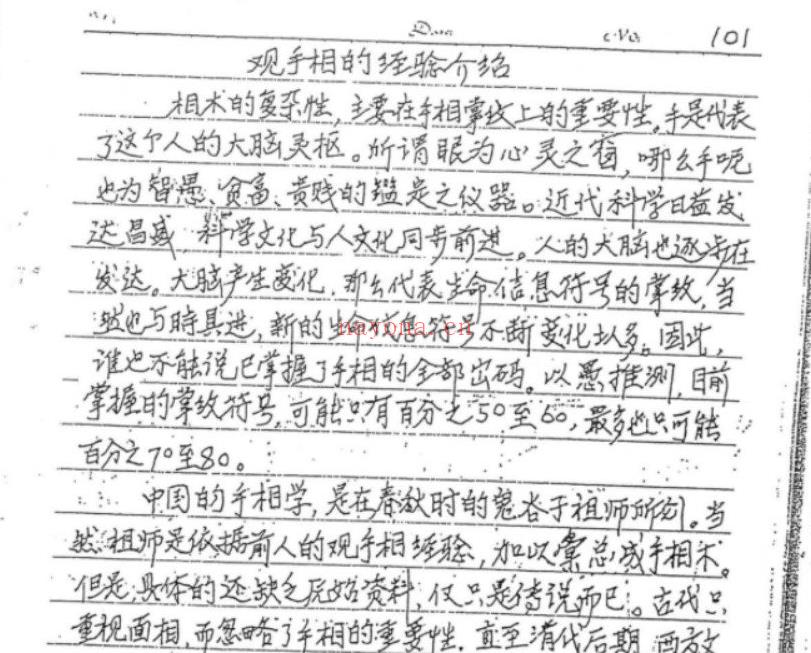 Date No. 101
观手相的经验介绍
相术的复杂性,主要在手相掌纹上的重要性。手是代表
了这个人的大脑灵枢。所谓眼为心灵之窗,哪么手呃
也为智愚、贫富、贵贱的鑑定之仪器。近代科学日益发
达昌盛,科学文化与人文化同步前进。人的大脑也逐步在
发达。大脑产生变化,那么代表生命信息符号的掌纹,当
然也与時具进,新的生命信息符号不断变化增多。因此,
谁也不能说已掌握了手相的全部密码。以愚推测,目前
掌握的掌纹符号,可能只有百分之50至60,最多也只可能
百分之70至80。
中国的手相学,是在春秋时的鬼谷子祖师所创。当
然祖师是依据前人的观手相经验,加以汇总成手相术。
但是,具体的还缺乏原始资料,仅只是传说而已。古代只
重视面相,而忽略了手相的重要性,直至清代后期,西方文
nayona.cn